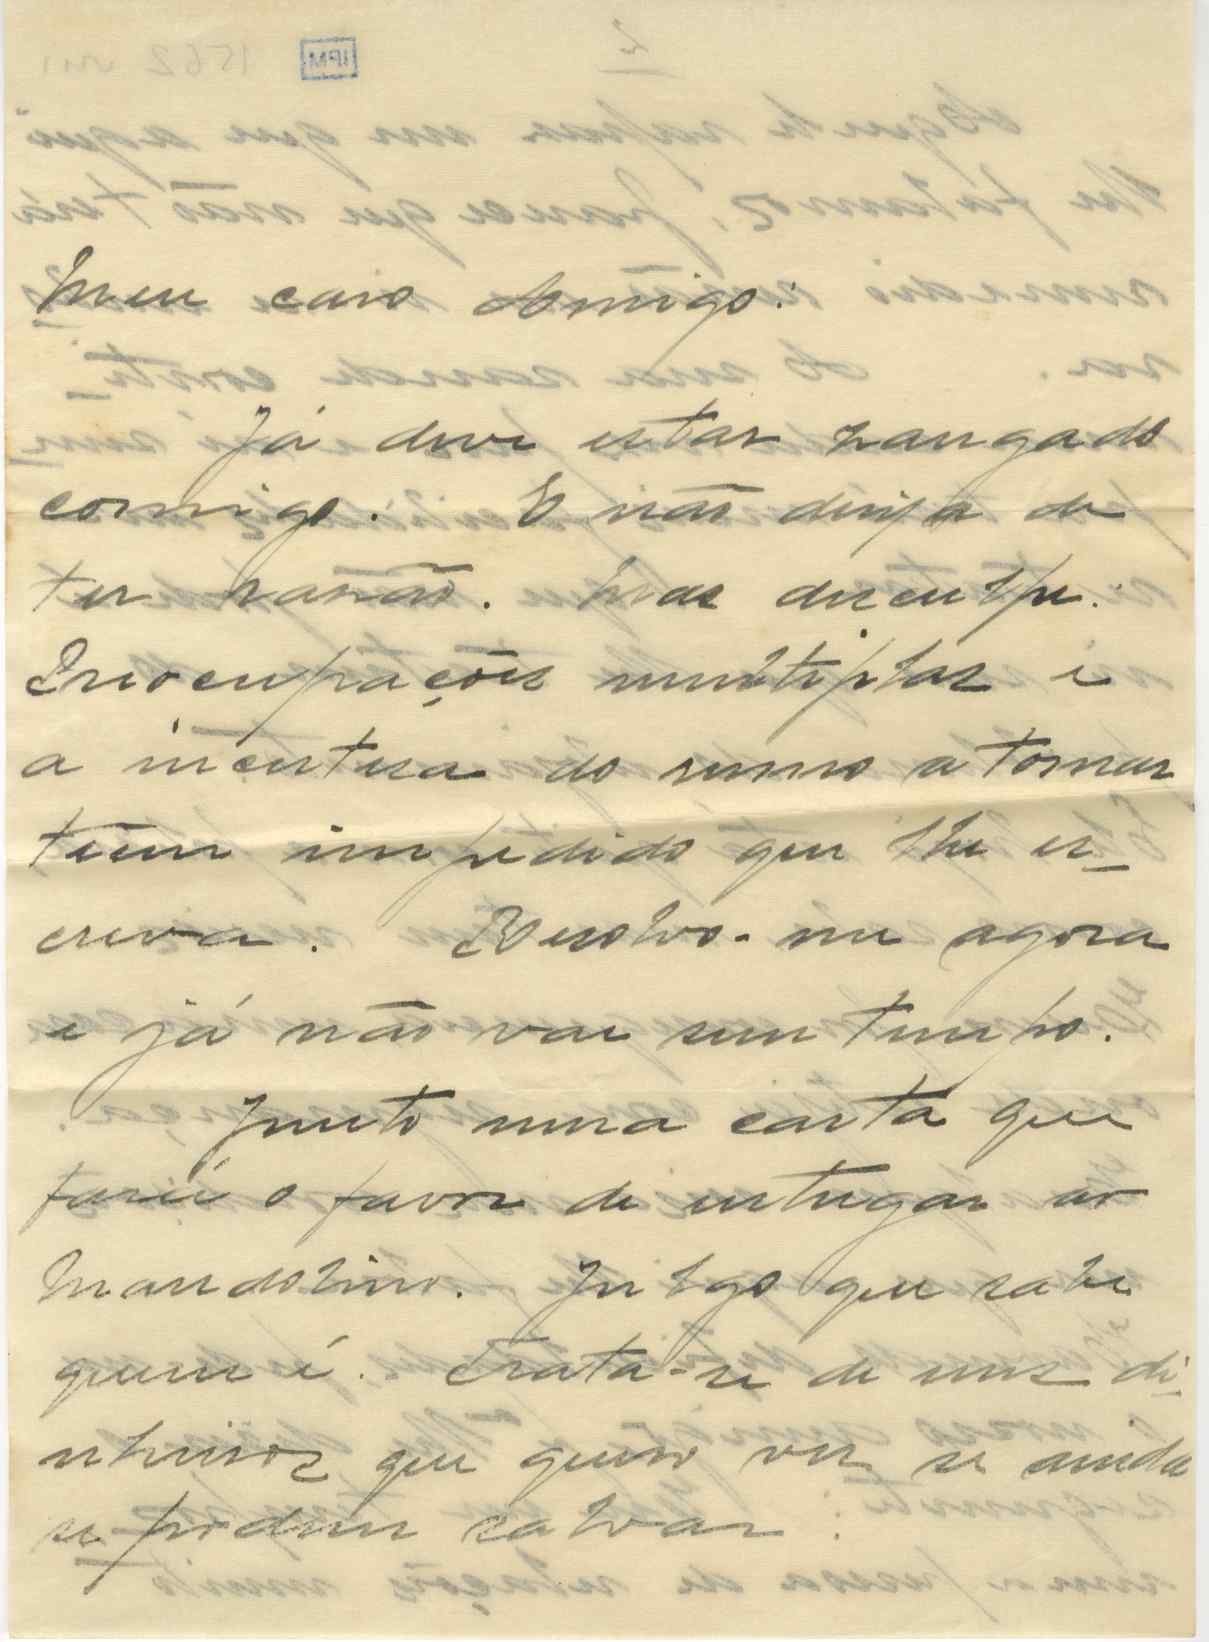 Meu caro Amigo:
Já deve estar zangado
comigo. E não deixa de
ter razão. Mas desculpe:
Preocupações multiplas e
a incerteza do rumo a tomar
teem impedido que lhe es-
creva. Resolvo-me agora
e já não vae sem tempo.
Junto uma carta que
fará o favor de entregar ao
Mandolino. Julgo que sabe
quem é. Trata-se de uns di-
nheiros que quero ver se ainda
se podem salvar.